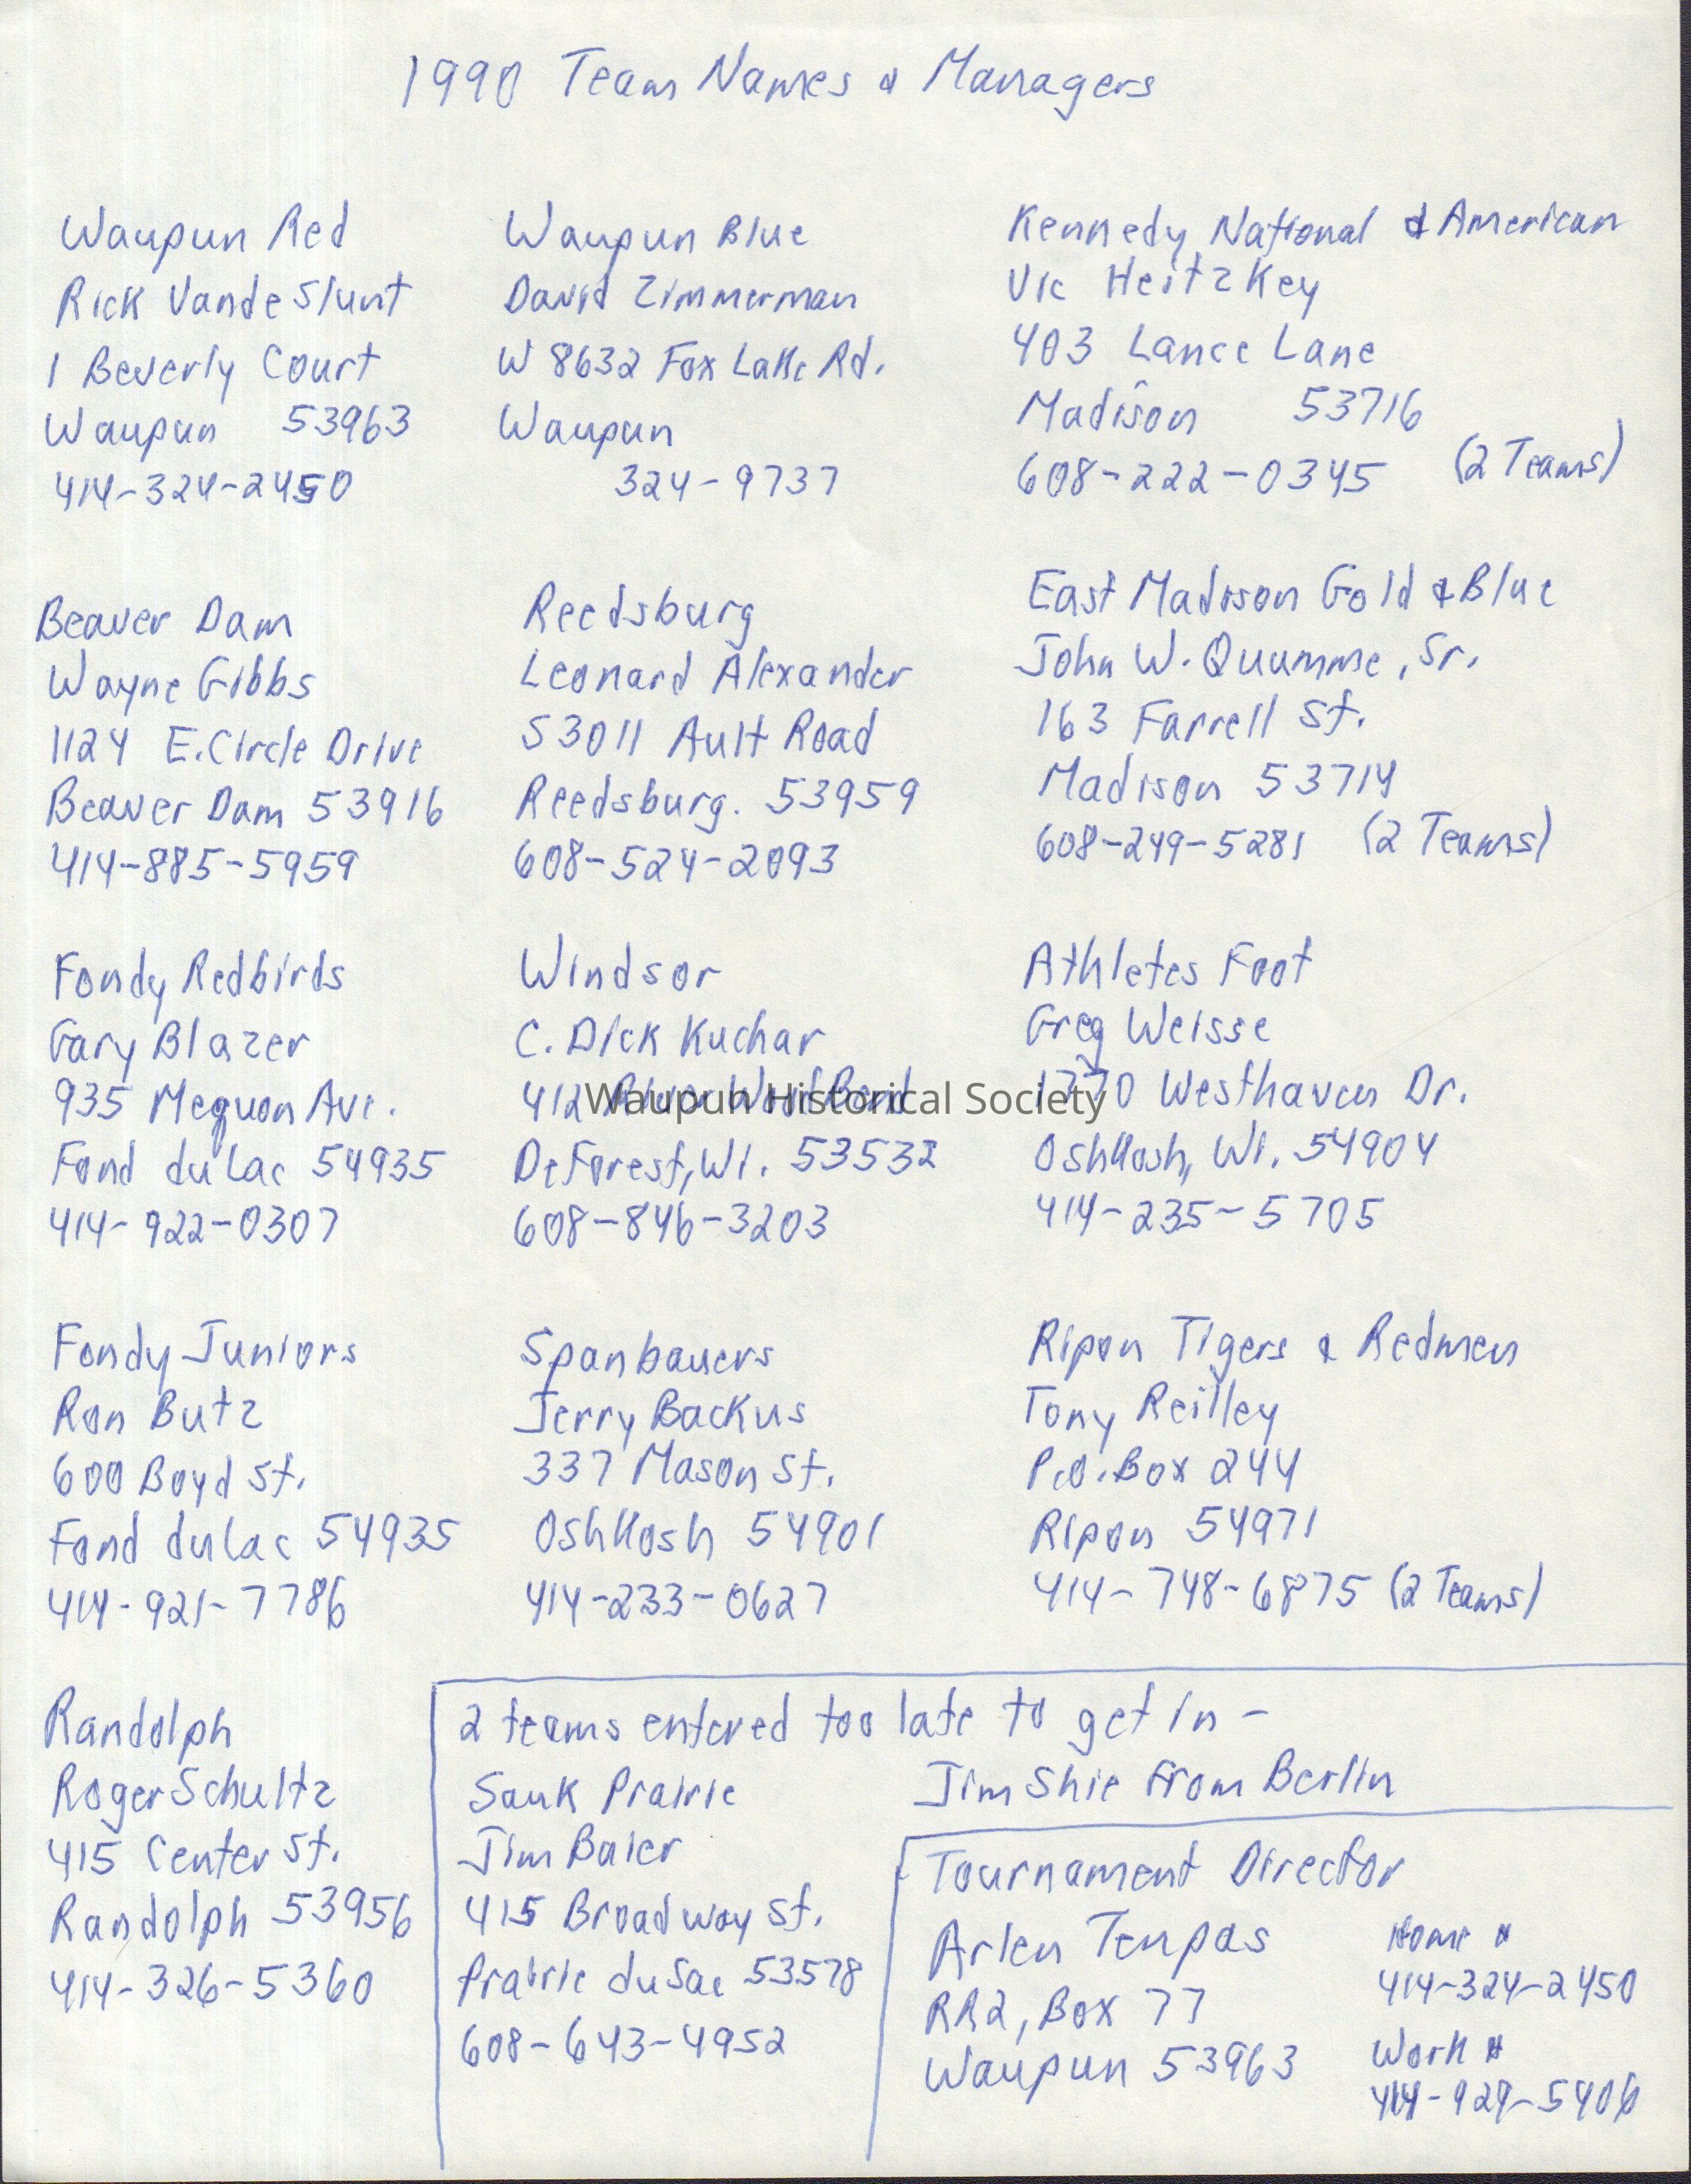 1990 Team Names & Managers
Waupun Red
Rick VandeSlunt
1 Beverly Court
Waupun 53963
414-324-2450
Waupun Blue
David Zimmerman
W 8632 Fox Lake Rd.
Waupun
324-9737
Kennedy National & American
Vic Heitzkey
403 Lance Lane
Madison 53716
608-222-0345 (2 Teams)
Beaver Dam
Wayne Gibbs
1124 E. Circle Drive
Beaver Dam 53916
414-885-5959
Reedsburg
Leonard Alexander
S3011 Ault Road
Reedsburg. 53959
608-524-2093
East Madison Gold & Blue
John W. Quamme, Sr.
163 Farrell St.
Madison 53714
608-249-5281 (2 Teams)
Fondy Redbirds
Gary Blazer
935 Mequon Ave.
Fond du Lac 54935
414-922-0307
Windsor
C. Dick Kuchar
412
DeForest, WI. 53532
608-846-3203
Athletes Foot
Greg Weisse
Westhaven Dr.
Oshkosh, WI. 54904
414-235-5705
Waupun Historical Society
Fondy Juniors
Ron Butz
600 Boyd St.
Fond du Lac 54935
414-921-7786
Spanbauers
Jerry Backus
337 Mason St.
Oshkosh 54901
414-233-0627
Ripon Tigers & Redmen
Tony Reilley
P.O. Box 244
Ripon 54971
414-748-6875 (2 Teams)
Randolph
Roger Schultz
415 Center St.
Randolph 53956
414-326-5360
2 teams entered too late to get in -
Sauk Prairie
Jim Baier
415 Broadway St.
Prairie du Sac 53578
608-643-4952
Jim Shie from Berlin
Tournament Director
Arlen Tenpas
RR2, Box 77
Waupun 53963
Home #
414-324-2450
Work #
414-929-5406